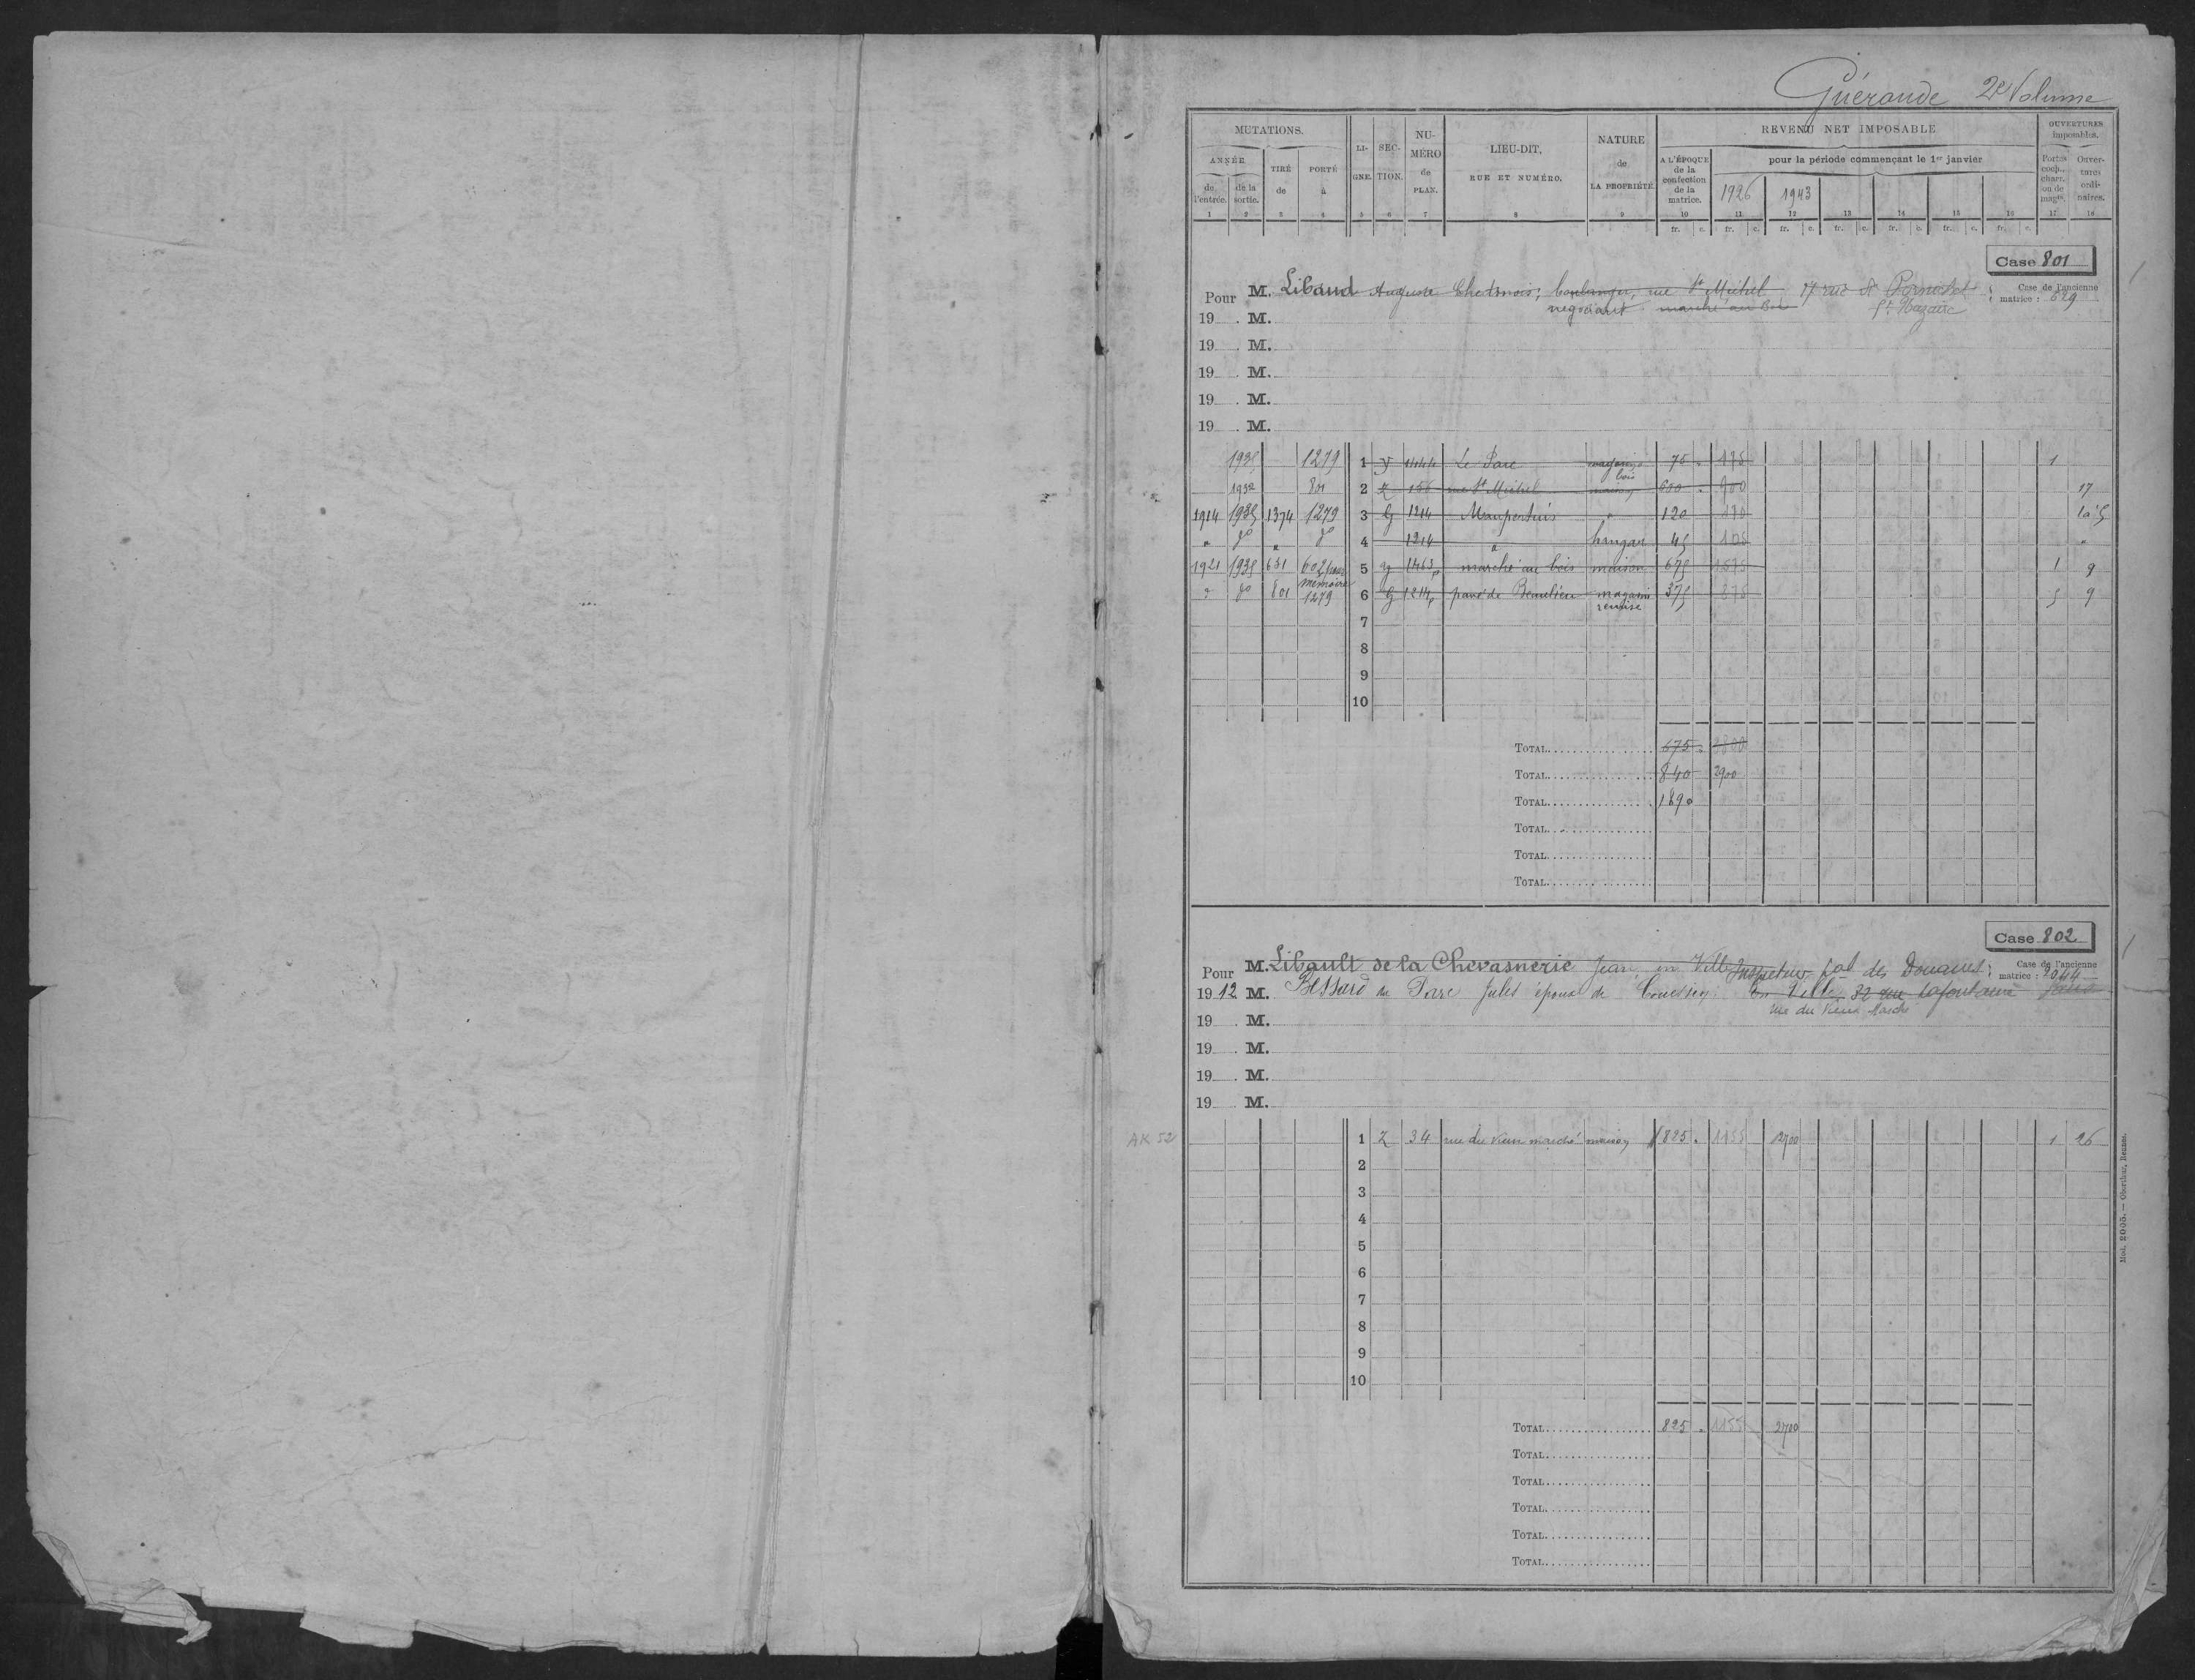 Guérande 2e Volume
MUTATIONS. LI-GNE. SEC-TION. NU-MÉRO de PLAN. LIEU-DIT, RUE ET NUMÉRO. NATURE de LA PROPRIÉTÉ REVENU NET IMPOSABLE OUVERTURES imposables.
ANNÉE TIRÉ de PORTÉ à A L'ÉPOQUE de la confection de la matrice. pour la période commençant le 1er janvier Portes coch., charr. ou de mags. Ouver-tures ordi-naires.
de l'entrée. de la sortie. 1926 1943
1 2 3 4 5 6 7 8 9 10 11 12 13 14 15 16 17 18
fr. c. fr. c. fr. c. fr. c. fr. c. fr. c. fr. c.
Case 801
Pour M. Libaud Auguste ; boulanger, rue St Michel 17 rue de Pornichet Case de l'ancienne matrice : 629
négociant marché au Bois St Nazaire
19 . M.
19 . M.
19 . M.
19 . M.
19 . M.
1935 1279 1 y 1444 Le Parc magasin bois 75 175 1
1932 801 2 Z 156 rue St Michel maison 600 900 17
1914 1935 1374 1279 3 G 1214 Maupertuis " 120 170
" do " do 4 1214 " hangar 45 105 "
1921 1935 651 602 pour mémoire 5 y 1463p marché au bois maison 675 1575 1 8
" do 801 1279 6 G 1214p pavé de Beaulieu magasin remise 375 875 5 9
7
8
9
10
TOTAL 675
TOTAL 840 2900
TOTAL 1890
TOTAL
TOTAL
TOTAL
Case 802
Pour M. Libault de la Chevasnerie Jean, en Ville Inspecteur pal des Douanes ; Case de l'ancienne matrice : 2044
1912 M. Bessard du Parc Jules époux de En Ville 32 rue Lafontaine
rue du Vieux Marché
19 . M.
19 . M.
19 . M.
19 . M.
AK 52 1 Z 34 rue du vieux marché maison 825 1155 2700 1 26
2
3
4
5
6
7
8
9
10
TOTAL 825 1155 2700
TOTAL
TOTAL
TOTAL
TOTAL
TOTAL
Mod. 2005. — Oberthur, Rennes.